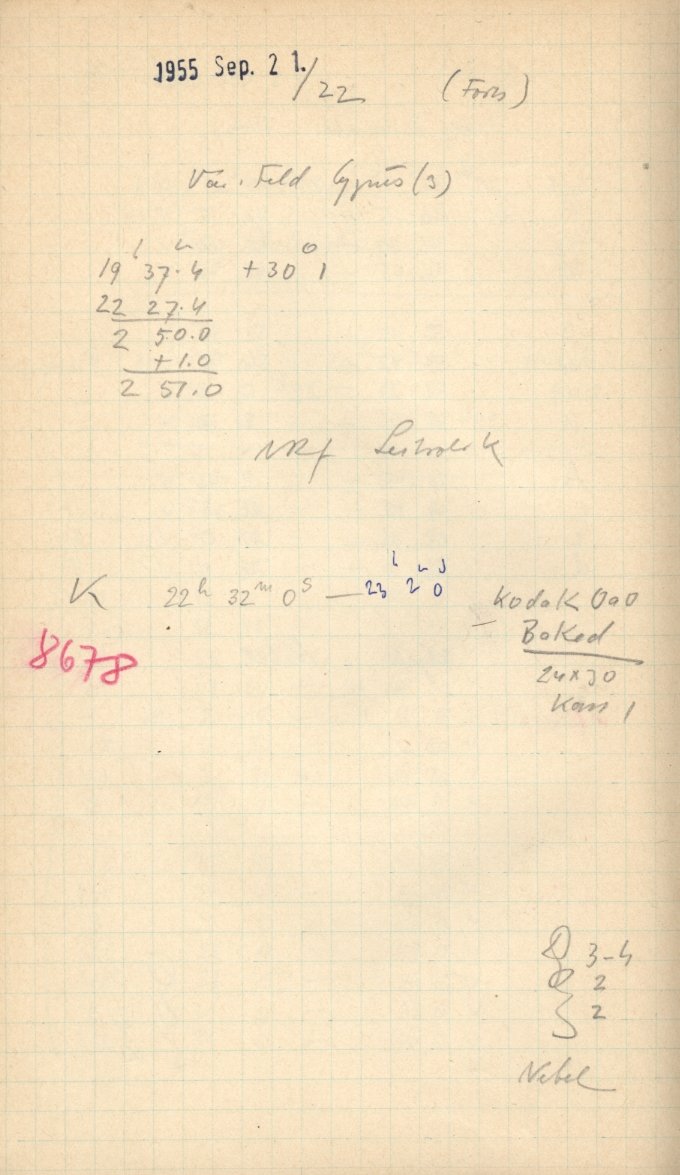 1955 Sep. 21./22 (Forts)
Var. Feld Cygnus (3)
19h 37.4 +30° 1
22 27.4
2 50.0
+1.0
2 51.0
K 22h 32m 0s — 23 2 0
Kodak Oa0
Baked
24x30
Kass 1
8678
3-4
2
2
Nebel